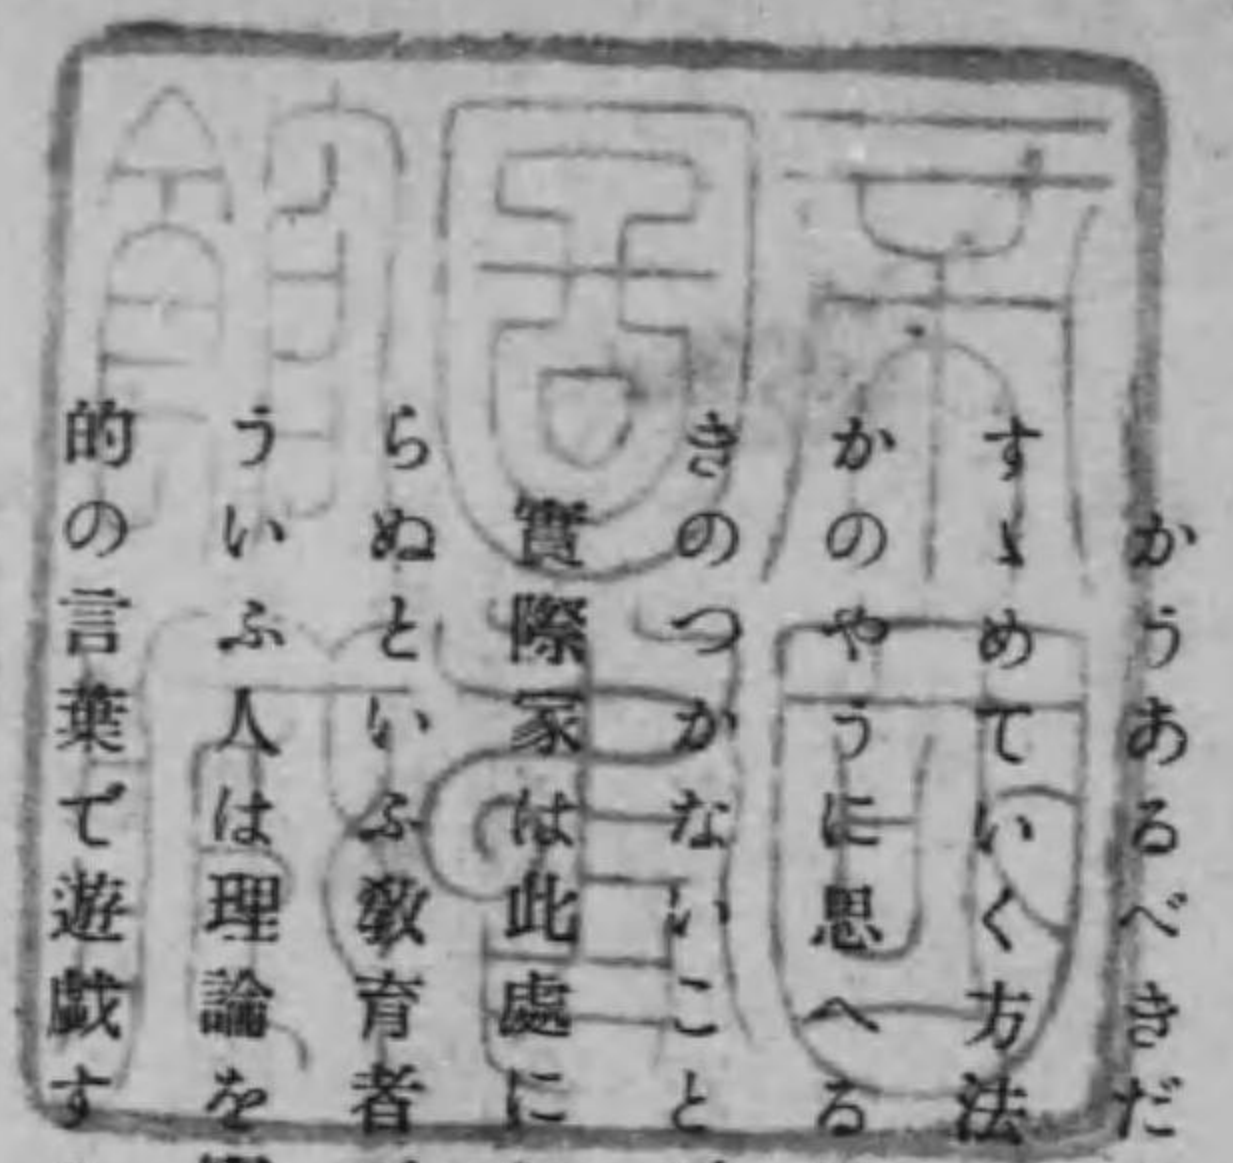 かうあるべきだ
すゝめていく方法
かのやうに思へる
きのつかないこと
實際家は此處に
らぬといふ教育者
ういふ人は理論を
的の言葉で遊戯す